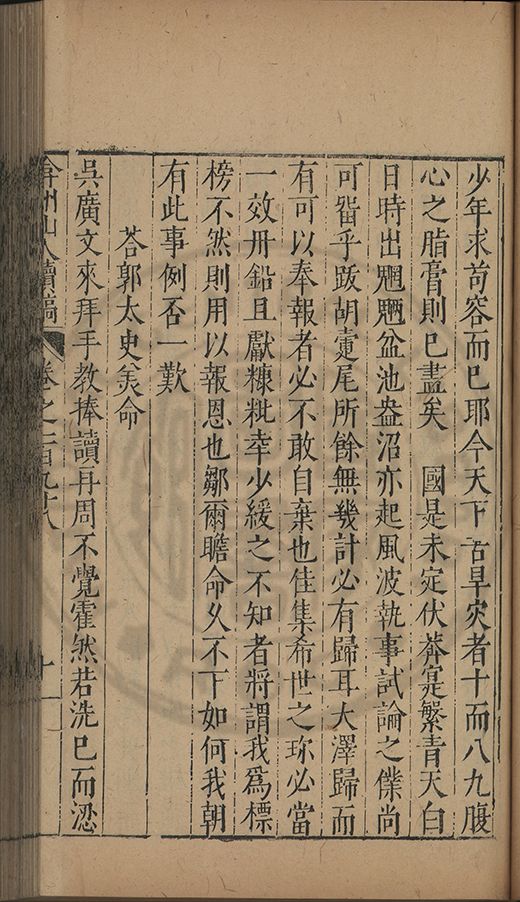 少年求苟容而已耶今天下苦旱灾者十而八九腹
心之脂膏則已盡矣　國是未定伏莽寔繁青天白
日時出魍魎盆池盎沼亦起風波執事試論之僕尚
可留乎跋胡疐尾所餘無幾計必有歸耳大澤歸而
有可以奉報者必不敢自棄也佳集希世之珎必當
一效丹鉛且獻糠粃幸少緩之不知者將謂我爲標
榜不然則用以報恩也鄒爾瞻命乆不下如何我朝
有此事例否一歎
荅郭太史羙命
吳廣文來拜手教捧讀再周不覺霍然若洗已而涊
弇州山人續稿　卷之一百九十八　十一